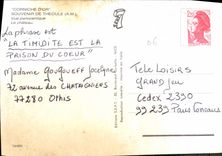 "CORNICHE D'OR"
SOUVENIR DE THEOULE (A.M.)
Vue panoramique
Le château
La phrase est
"LA TIMIDITE EST LA
PRISON DU COEUR"
Madame GOUGOUEFF Jocelyne
72 avenue des CHATAIGNIERS
77280 Othis
Tele Loisirs
Grand Jeu
Cedex 2390
99233 Paris Concours